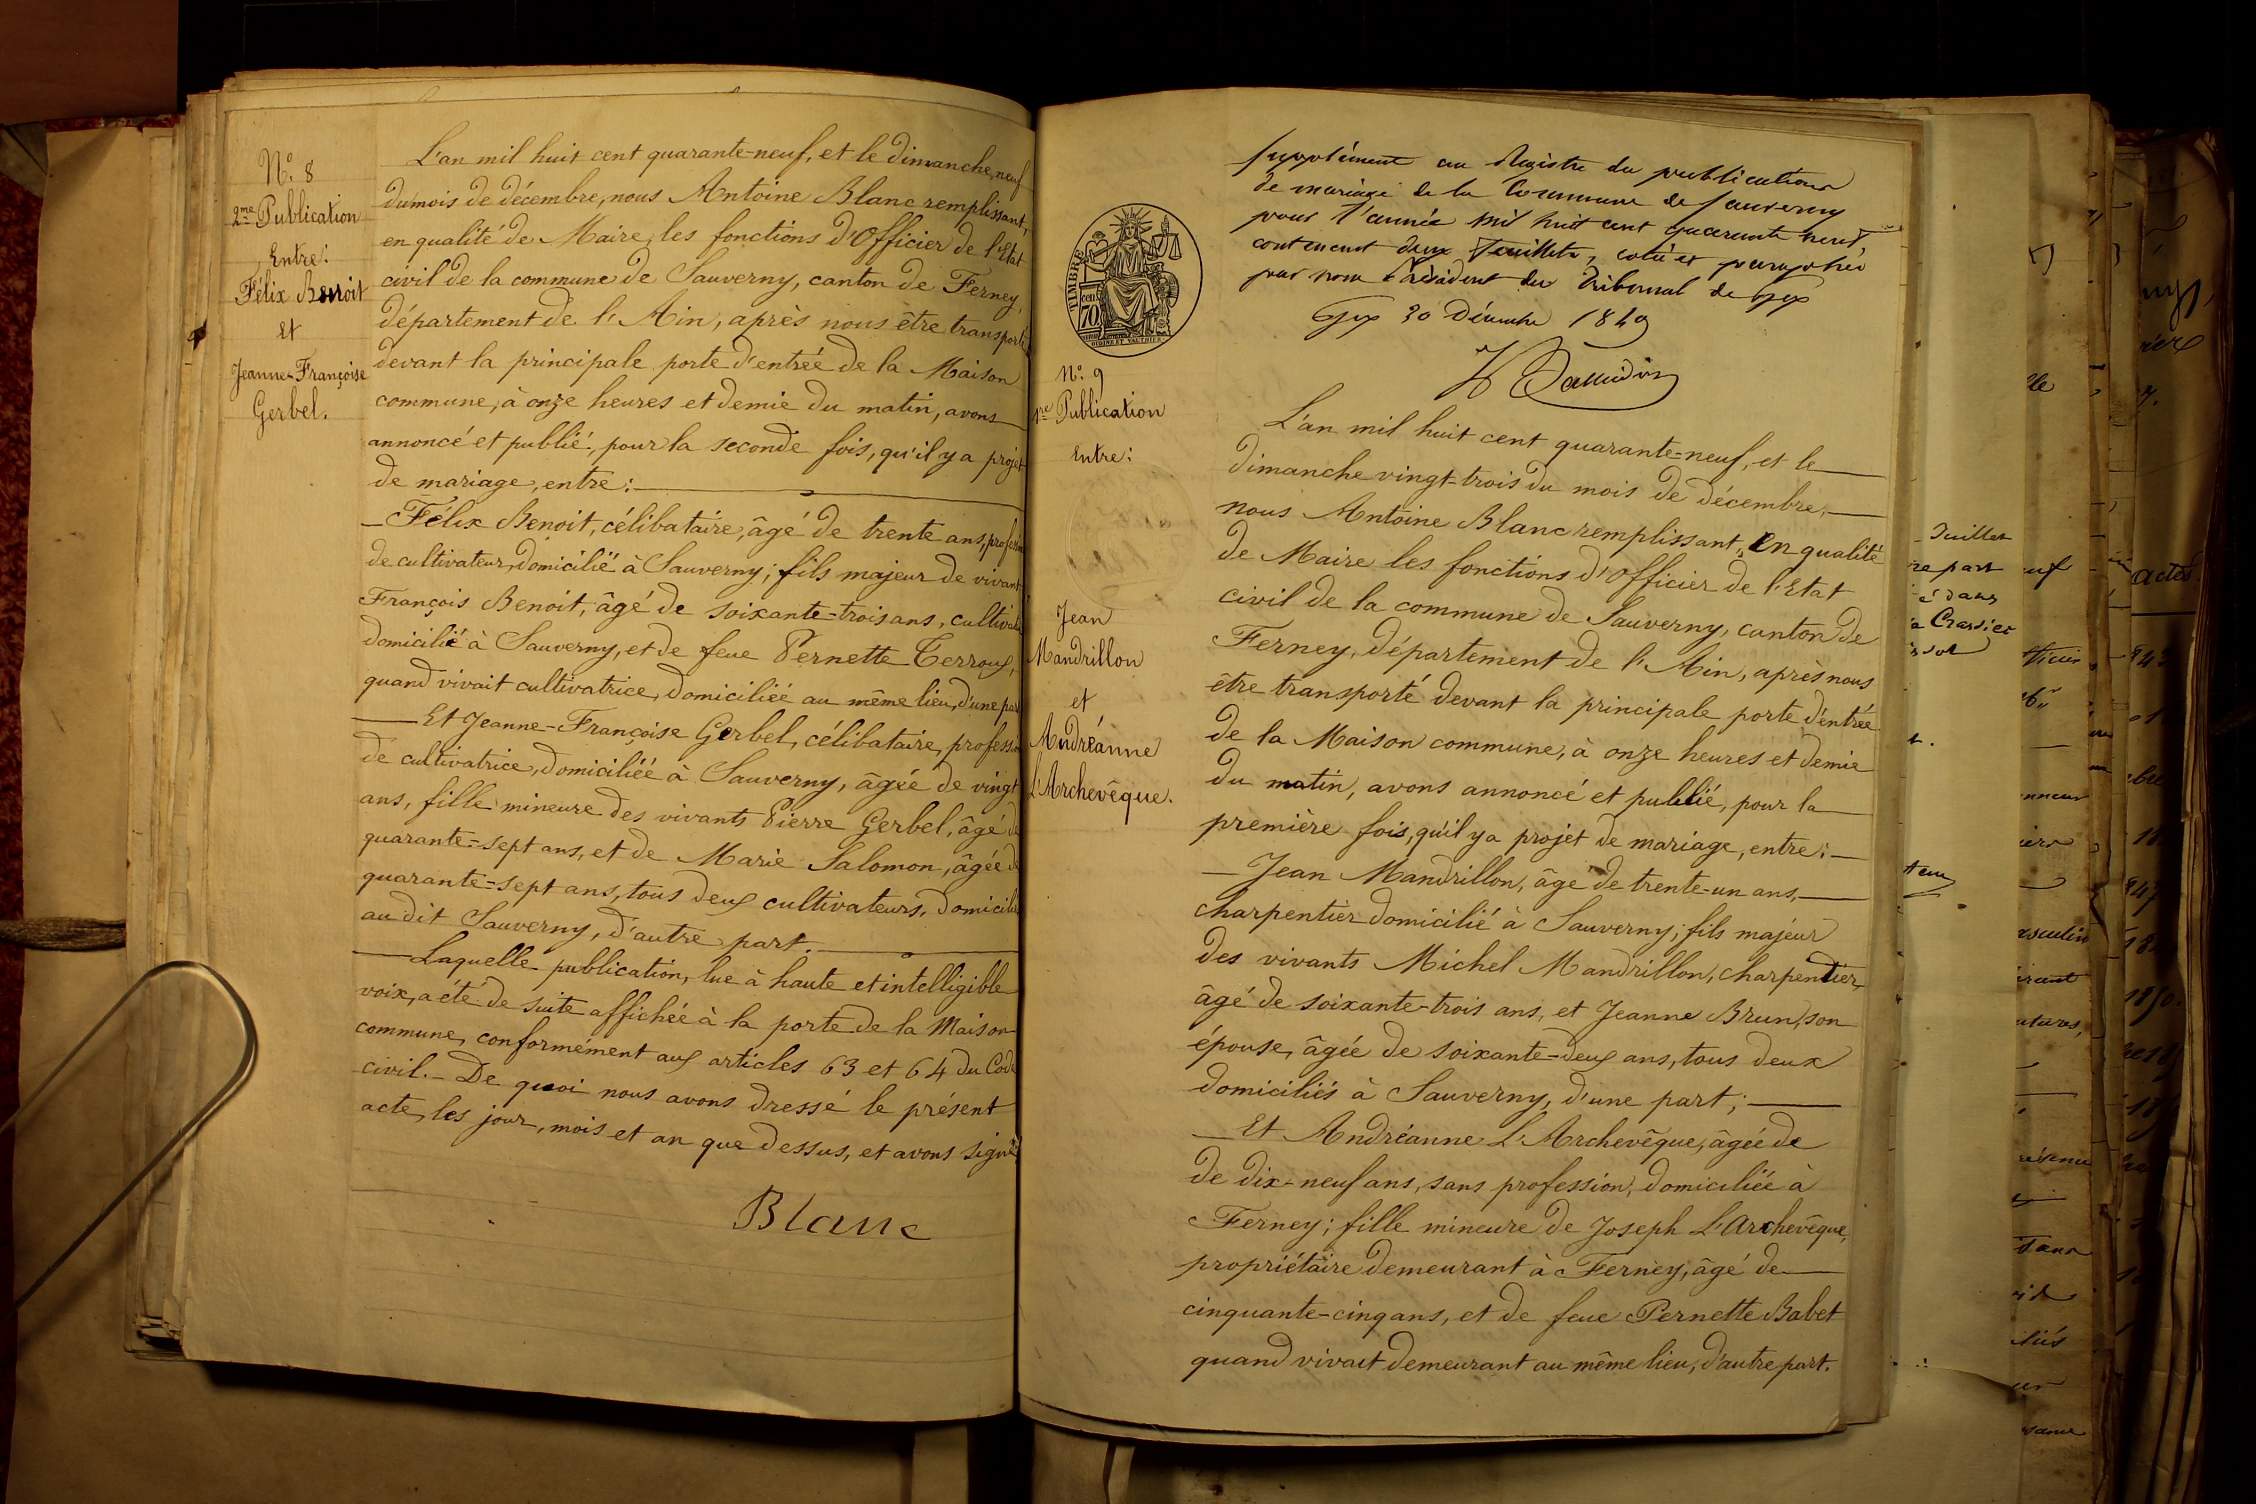 N.º 8
2.me Publication
Entre:
Félix Benoit
et
Jeanne-Françoise
Gerbel.
L'an mil huit cent quarante-neuf, et le dimanche, neuf
du mois de décembre, nous Antoine Blanc remplissant,
en qualité de Maire, les fonctions d'Officier de l'Etat
civil de la commune de Sauverny, canton de Ferney,
département de l'Ain, après nous être transporté
devant la principale porte d'entrée de la Maison
commune, à onze heures et demie du matin, avons
annoncé et publié, pour la seconde fois, qu'il y a projet
de mariage, entre:
Félix Benoit, célibataire, âgé de trente ans, profession
de cultivateur, domicilié à Sauverny; fils majeur de vivant
François Benoit, âgé de soixante-trois ans, cultivateur
domicilié à Sauverny, et de feue Pernette Terroux,
quand vivait cultivatrice, domiciliée au même lieu, d'une part
Et Jeanne-Françoise Gerbel, célibataire, profession
de cultivatrice, domiciliée à Sauverny, âgée de vingt
ans, fille mineure des vivants Pierre Gerbel, âgé de
quarante-sept ans, et de Marie Salomon, âgée de
quarante-sept ans, tous deux cultivateurs, domiciliés
au dit Sauverny, d'autre part.
Laquelle publication, lue à haute et intelligible
voix, a été de suite affichée à la porte de la Maison
commune, conformément aux articles 63 et 64 du Code
civil. - De quoi nous avons dressé le présent
acte, les jour, mois et an que dessus, et avons signé.
Blanc
Supplément au Registre du publications
de mariage de la Commune de Sauverny
pour l'année mil huit cent quarante neuf,
contenant deux feuillets, coté et paraphé
par nous Président du Tribunal de Gex
Gex 20 Décembre 1849
TIMBRE
70
N.º 9
1re Publication
Entre:
Jean
Mandrillon
et
Andréanne
L'Archevêque.
L'an mil huit cent quarante-neuf, et le
dimanche vingt-trois du mois de décembre,
nous Antoine Blanc remplissant, en qualité
de Maire les fonctions d'officier de l'Etat
civil de la commune de Sauverny, canton de
Ferney, département de l'Ain, après nous
être transporté devant la principale porte d'entrée
de la Maison commune, à onze heures et demie
du matin, avons annoncé et publié, pour la
première fois, qu'il y a projet de mariage, entre:
Jean Mandrillon, âgé de trente-un ans,
charpentier domicilié à Sauverny; fils majeur
des vivants Michel Mandrillon, charpentier,
âgé de soixante-trois ans, et Jeanne Brun, son
épouse, âgée de soixante-deux ans, tous deux
domiciliés à Sauverny, d'une part;
Et Andréanne L'Archevêque, âgée de
de dix-neuf ans, sans profession, domiciliée à
Ferney; fille mineure de Joseph L'Archevêque,
propriétaire demeurant à Ferney, âgé de
cinquante-cinq ans, et de feue Pernette Babet
quand vivait demeurant au même lieu, d'autre part.